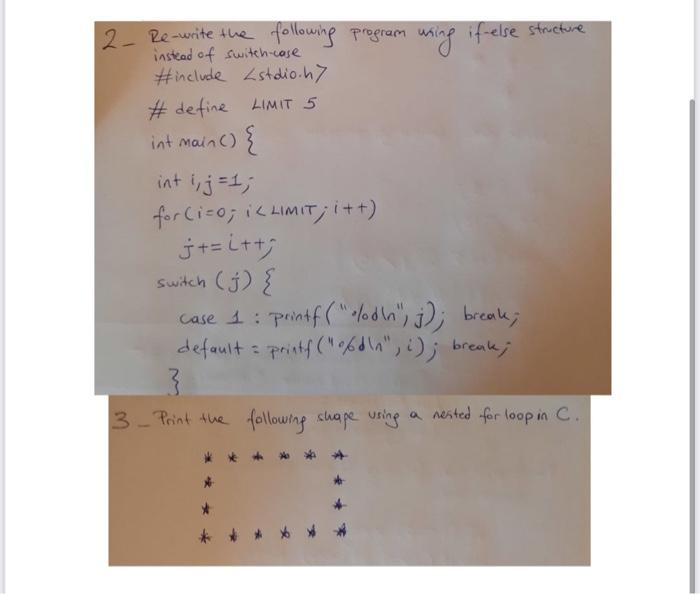 2- Re-write the following program using if-else structure
instead of switch-case
#include <stdio.h>
# define LIMIT 5
int main() {
int i,j=1;
for(i=0; i<LIMIT; i++)
j+=i++;
switch (j) {
case 1 : printf("%d\n", j); break;
default : printf("%d\n", i); break;
}
3- Print the following shape using a nested for loop in C.
* * * * * *
* *
* *
* * * * * *